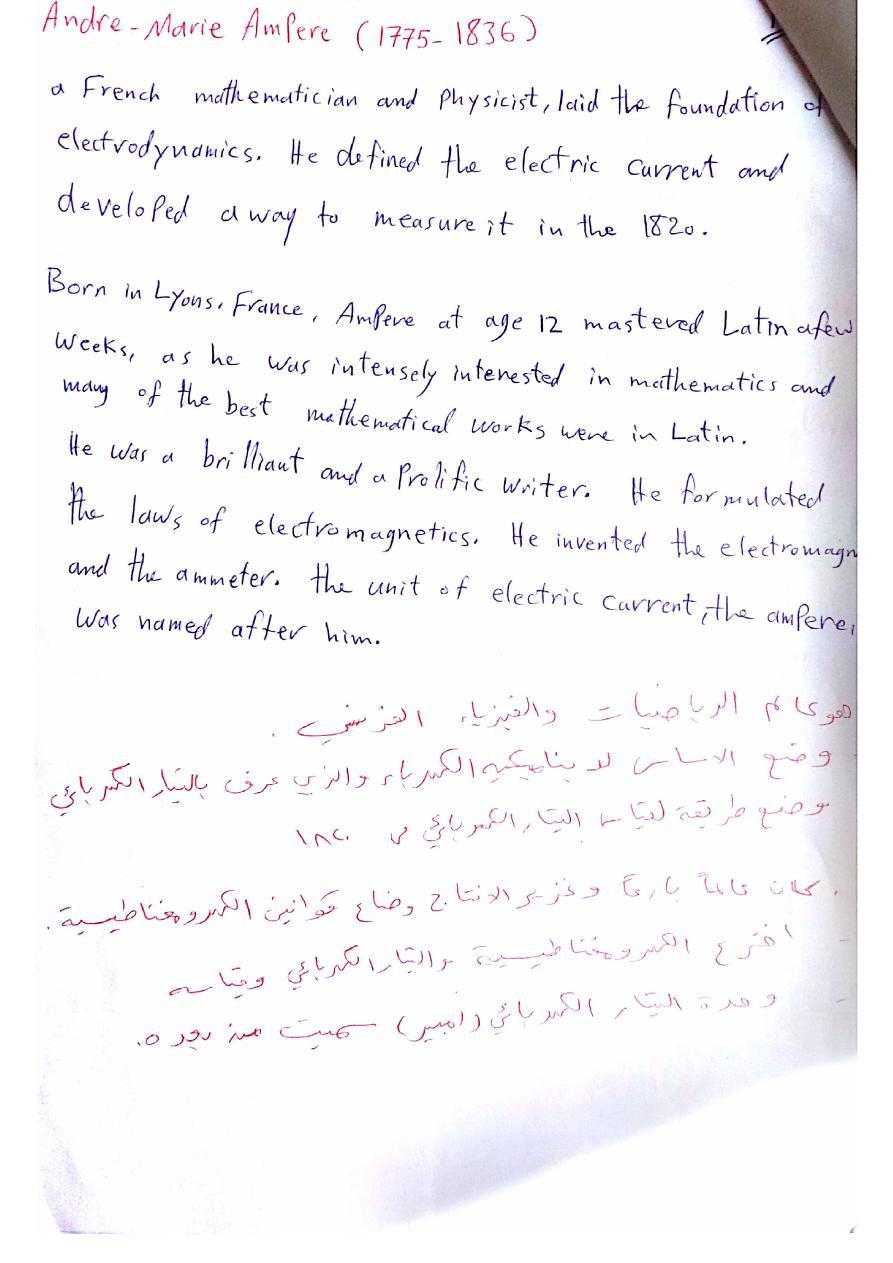 Andre-Marie Ampere (1775-1836)
a French mathematician and Physicist, laid the foundation of
electrodynamics. He defined the electric current and
developed a way to measure it in the 1820.
Born in Lyons, France, Ampere at age 12 mastered Latin a few
weeks, as he was intensely interested in mathematics and
many of the best mathematical works were in Latin.
He was a brilliant and a Prolific writer. He formulated
the laws of electromagnetics. He invented the electromagn
and the ammeter. the unit of electric current, the ampere,
was named after him.
هو عالم الرياضيات والفيزياء الفرنسي .
وضع الاساس لديناميكية الكهرباء والذي عرف بالتيار الكهربائي
وضع طريقة لقياس التيار الكهربائي في ١٨٢٠
. كان عالماً بارعاً وغزير الانتاج وضاع قوانين الكهرومغناطيسية .
- اخترع الكهرومغناطيسية والتيار الكهربائي وقياسه
- وحدة التيار الكهربائي (امبير) سميت من بعده .